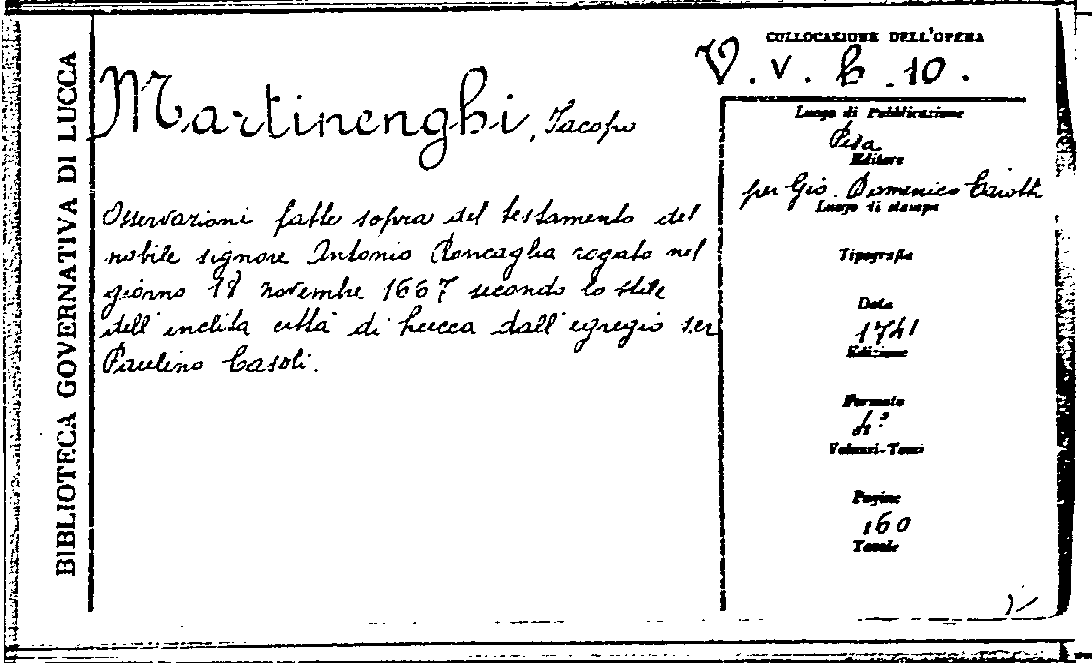 BIBLIOTECA GOVERNATIVA DI LUCCA
COLLOCAZIONE DELL'OPERA
V. v. b. 10.
Martinenghi, Jacopo
Osservazioni fatte sopra del testamento del
nobile signore Antonio Roncaglia rogato nel
giorno 18 novembre 1667 secondo lo stile
dell'inclita città di Lucca dall'egregio ser
Paulino Casoli.
Luogo di Pubblicazione
Pisa
Editore
per Gio. Domenico
Luogo di stampa
Tipografia
Data
1741
Edizione
Formato
4°
Volumi-Tomi
Pagine
160
Tavole